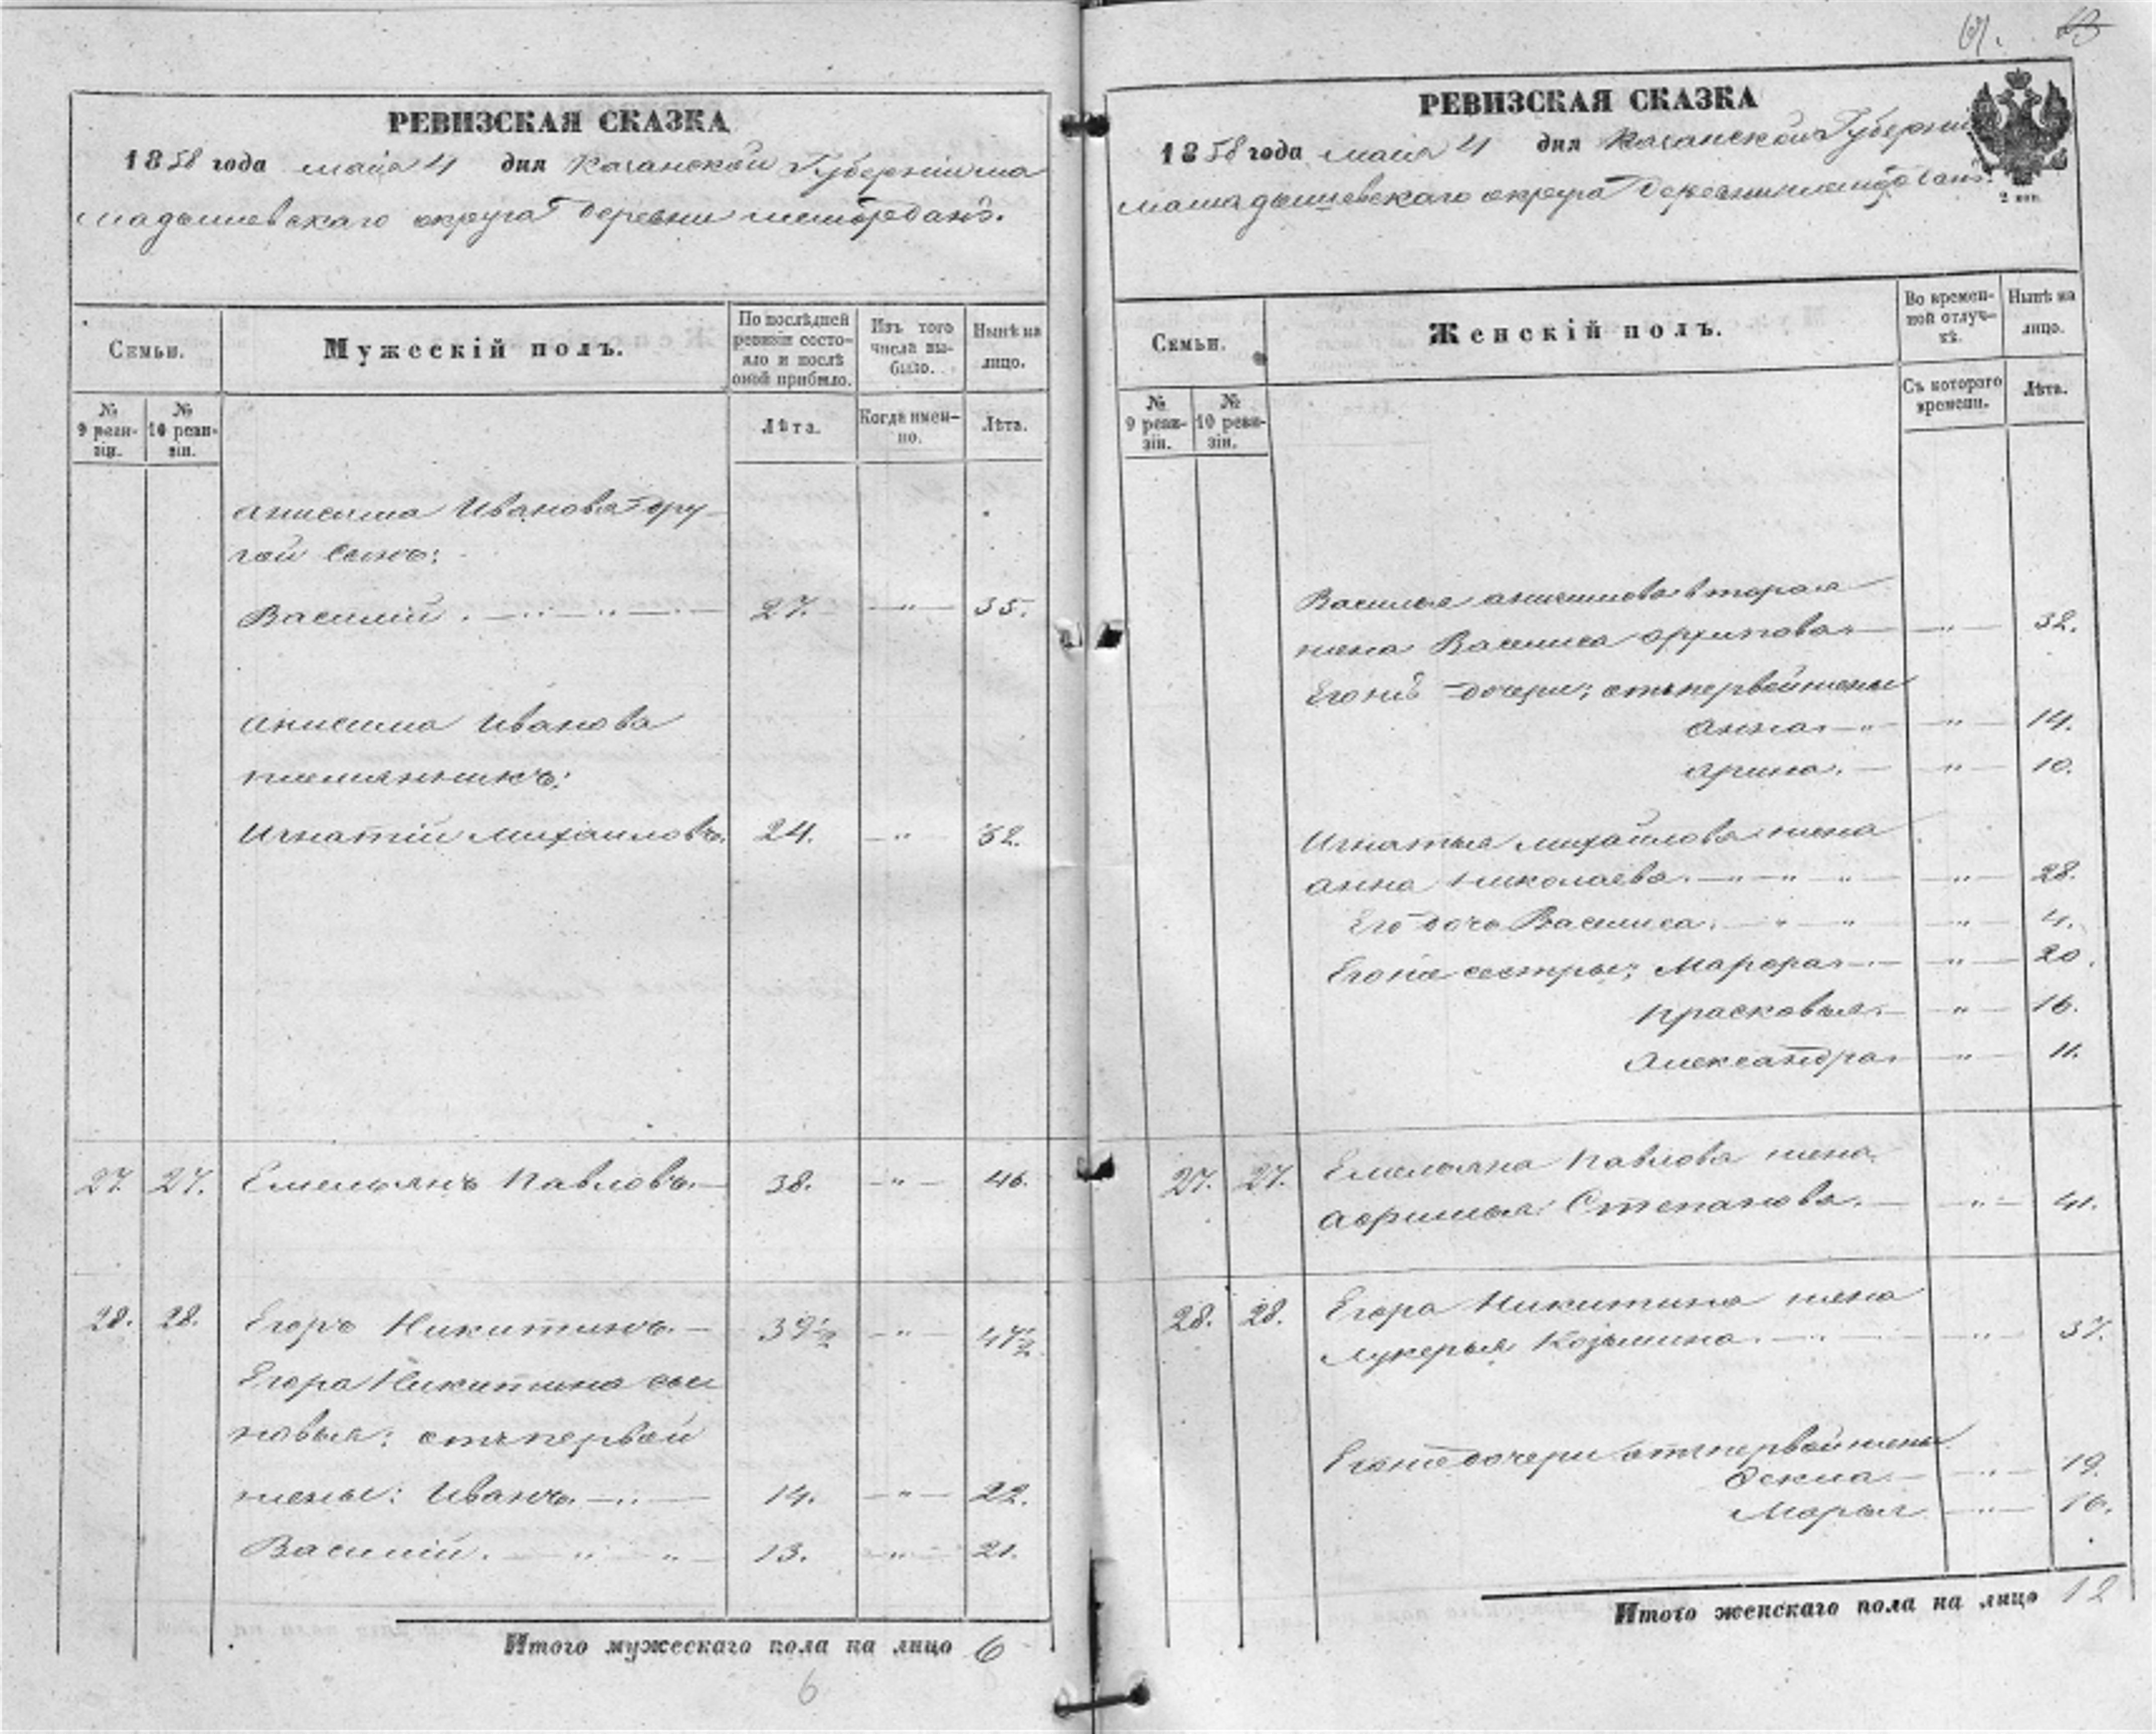 РЕВИЗСКАЯ СКАЗКА
1858 года мая 4 дня Казанской Губерніи ма
мадышевскаго округа деревни
Семьи.
Мужескій полъ.
По послѣдней ревизіи состояло и послѣ оной прибыло.
Изъ того числа выбыло.
Нынѣ на лицо.
№ 9 ревизіи.
№ 10 ревизіи.
Лѣта.
Когда именно.
Лѣта.
анисима Иванова дру
гой сынъ:
Василій. 27. — " — 35.
анисима Иванова
племянникъ:
Игнатій Михаиловъ. 24. — " — 32.
27. 27. Емельянъ Павловъ. — 38. — " — 46.
28. 28. Егоръ Никитинъ. — 39½ — " — 47½
Егора Никитина сы
новья: отъ первой
жены: Иванъ. — " — 14. — " — 22.
Василій. — " " — 13. — " — 21.
Итого мужескаго пола на лицо 6
6
61. 13
РЕВИЗСКАЯ СКАЗКА
1858 года мая 4 дня Казанской Губерніи
мамадышевскаго округа деревни
2 коп.
Семьи.
Женскій полъ.
Во временной отлучкѣ.
Нынѣ на лицо.
№ 9 ревизіи.
№ 10 ревизіи.
Съ котораго времени.
Лѣта.
Василья анисимова вторая
жена Василиса архипова — " — 32.
Егожъ дочери: отъ первой жены
анна — " — 14.
арина. — " — 10.
Игнатья михайлова жена
анна Николаева. — " — " " — " — 28.
Его дочь Василиса. — " — " — " — 4.
Егоже сестры: Марфа — " — 20.
Прасковья. — " — 16.
Александра — " — 11.
27. 27. Емельяна Павлова жена
Степанова. — " — 41.
28. 28. Егора Никитина жена
Лукерья Козьмина. — " — " — 37.
Егоже дочери отъ первой жены
Фекла. — " — 19.
Марья — " — 16.
Итого женскаго пола на лицо 12